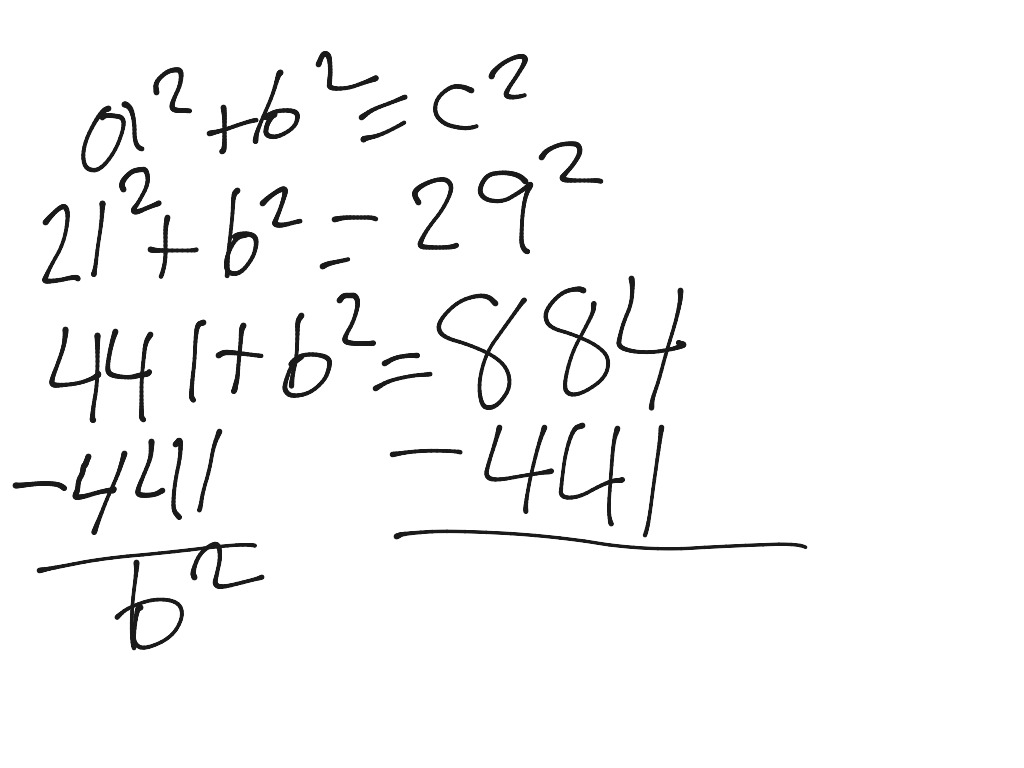 a² + b² = c²
21² + b² = 29²
441 + b² = 884
-441 -441
b²